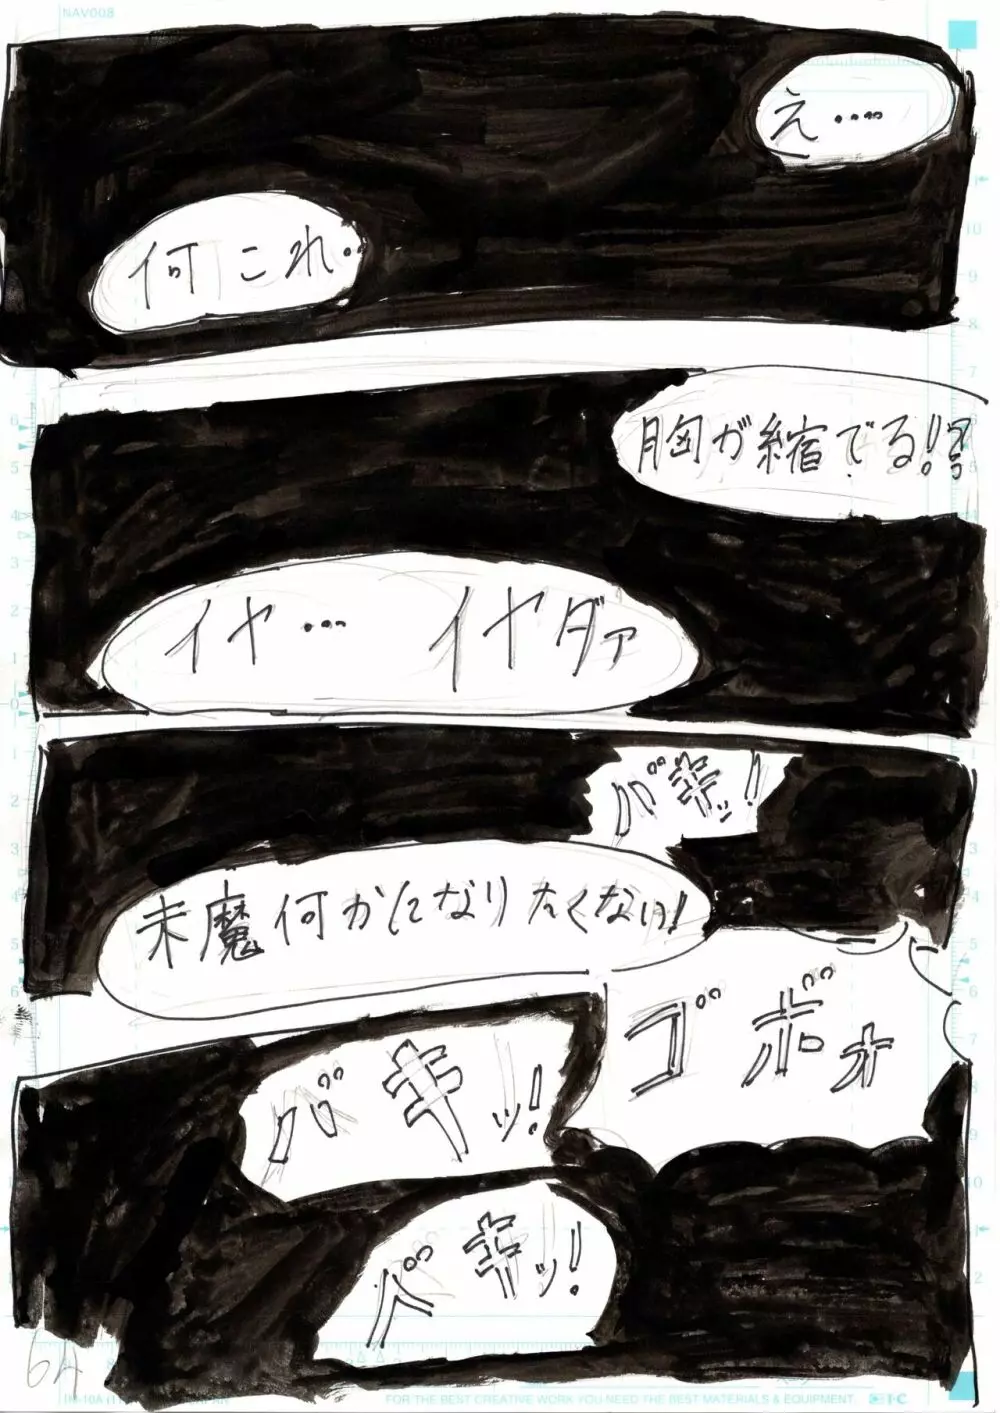 NAV008
え‥‥
何これ‥
胸が縮でる!?
イヤ… イヤダァ
バキッ!
未魔何かになりたくない!
ゴボォ
バキッ!
ベキッ!
FOR THE BEST CREATIVE WORK YOU NEED THE BEST MATERIALS & EQUIPMENT.
I·C